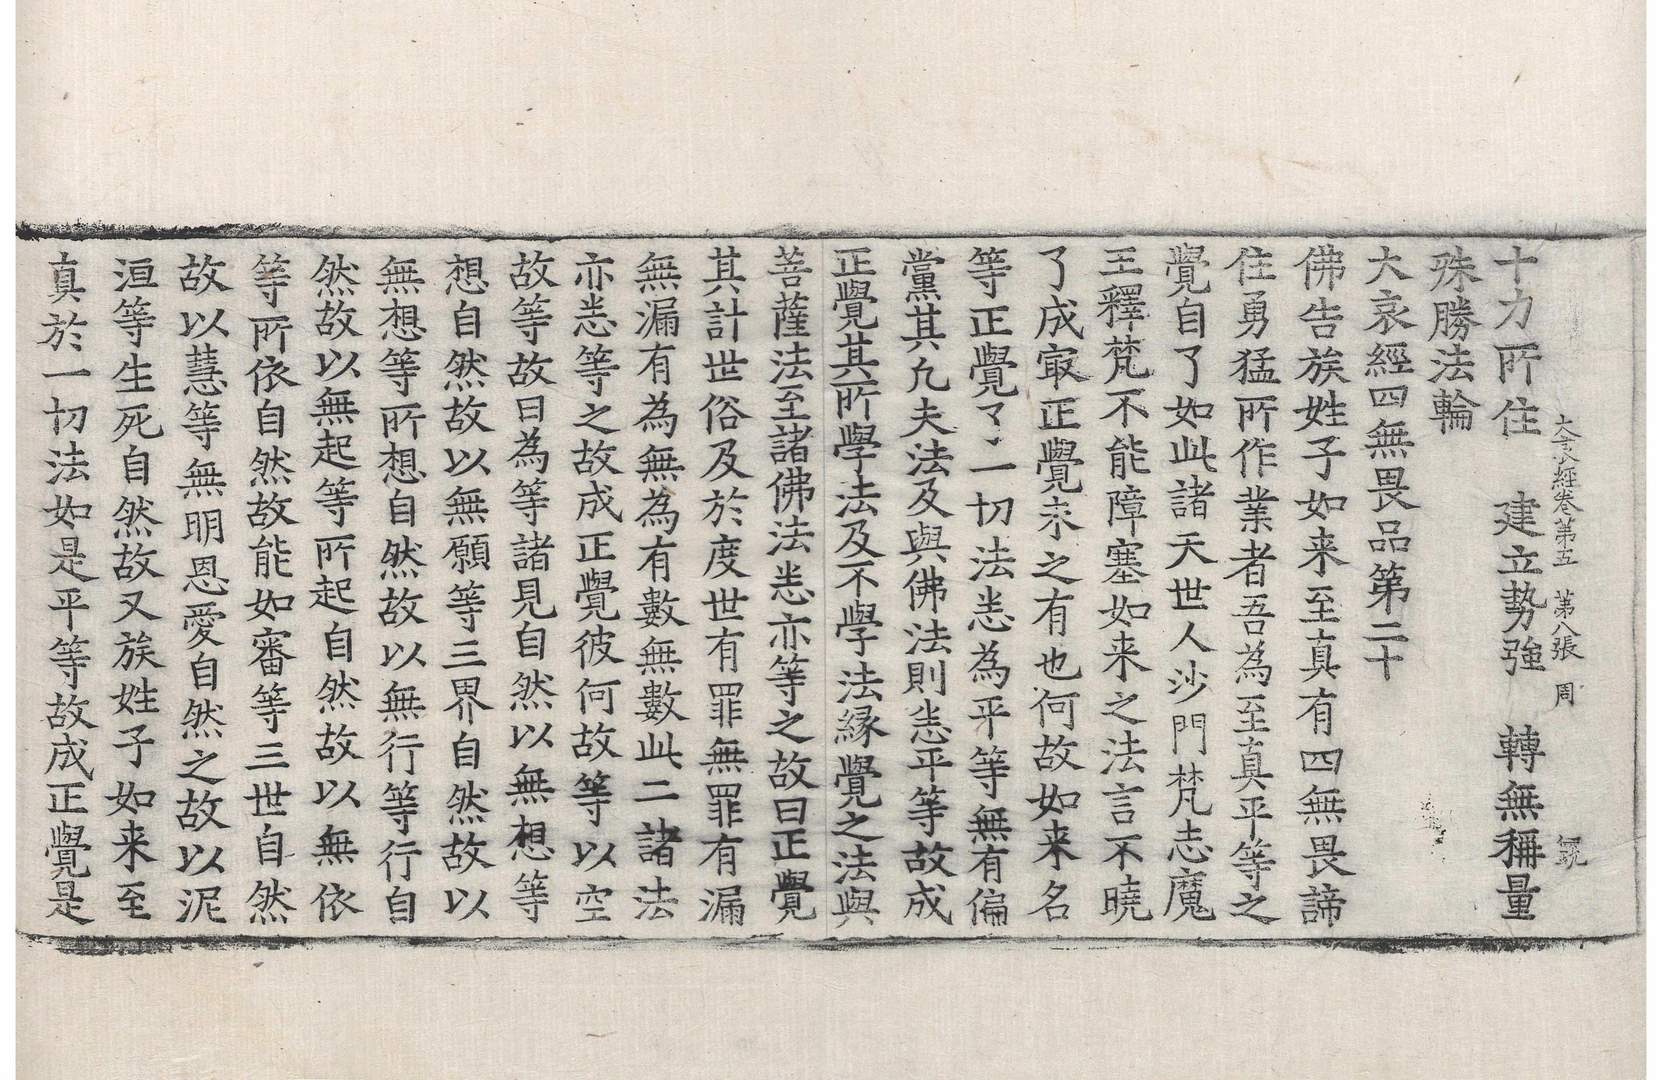 大哀經卷第五 第八張 周
十力所住 建立勢強 轉無稱量
殊勝法輪
大哀經四無畏品第二十
佛告族姓子如来至真有四無畏諦
住勇猛所作業者吾為至真平等之
覺自了如此諸天世人沙門梵志魔
王釋梵不能障塞如来之法言不曉
了成㝡正覺未之有也何故如来名
等正覺了〻一切法悉為平等無有偏
黨其凢夫法及與佛法則悉平等故成
正覺其所學法及不學法緣覺之法與
菩薩法至諸佛法悉亦等之故曰正覺
其計世俗及於度世有罪無罪有漏
無漏有為無為有數無數此二諸法
亦悉等之故成正覺彼何故等以空
故等故曰為等諸見自然以無想等
想自然故以無願等三界自然故以
無想等所想自然故以無行等行自
然故以無起等所起自然故以無依
等所依自然故能如審等三世自然
故以慧等無明恩愛自然之故以泥
洹等生死自然故又族姓子如来至
真於一切法如是平等故成正覺是